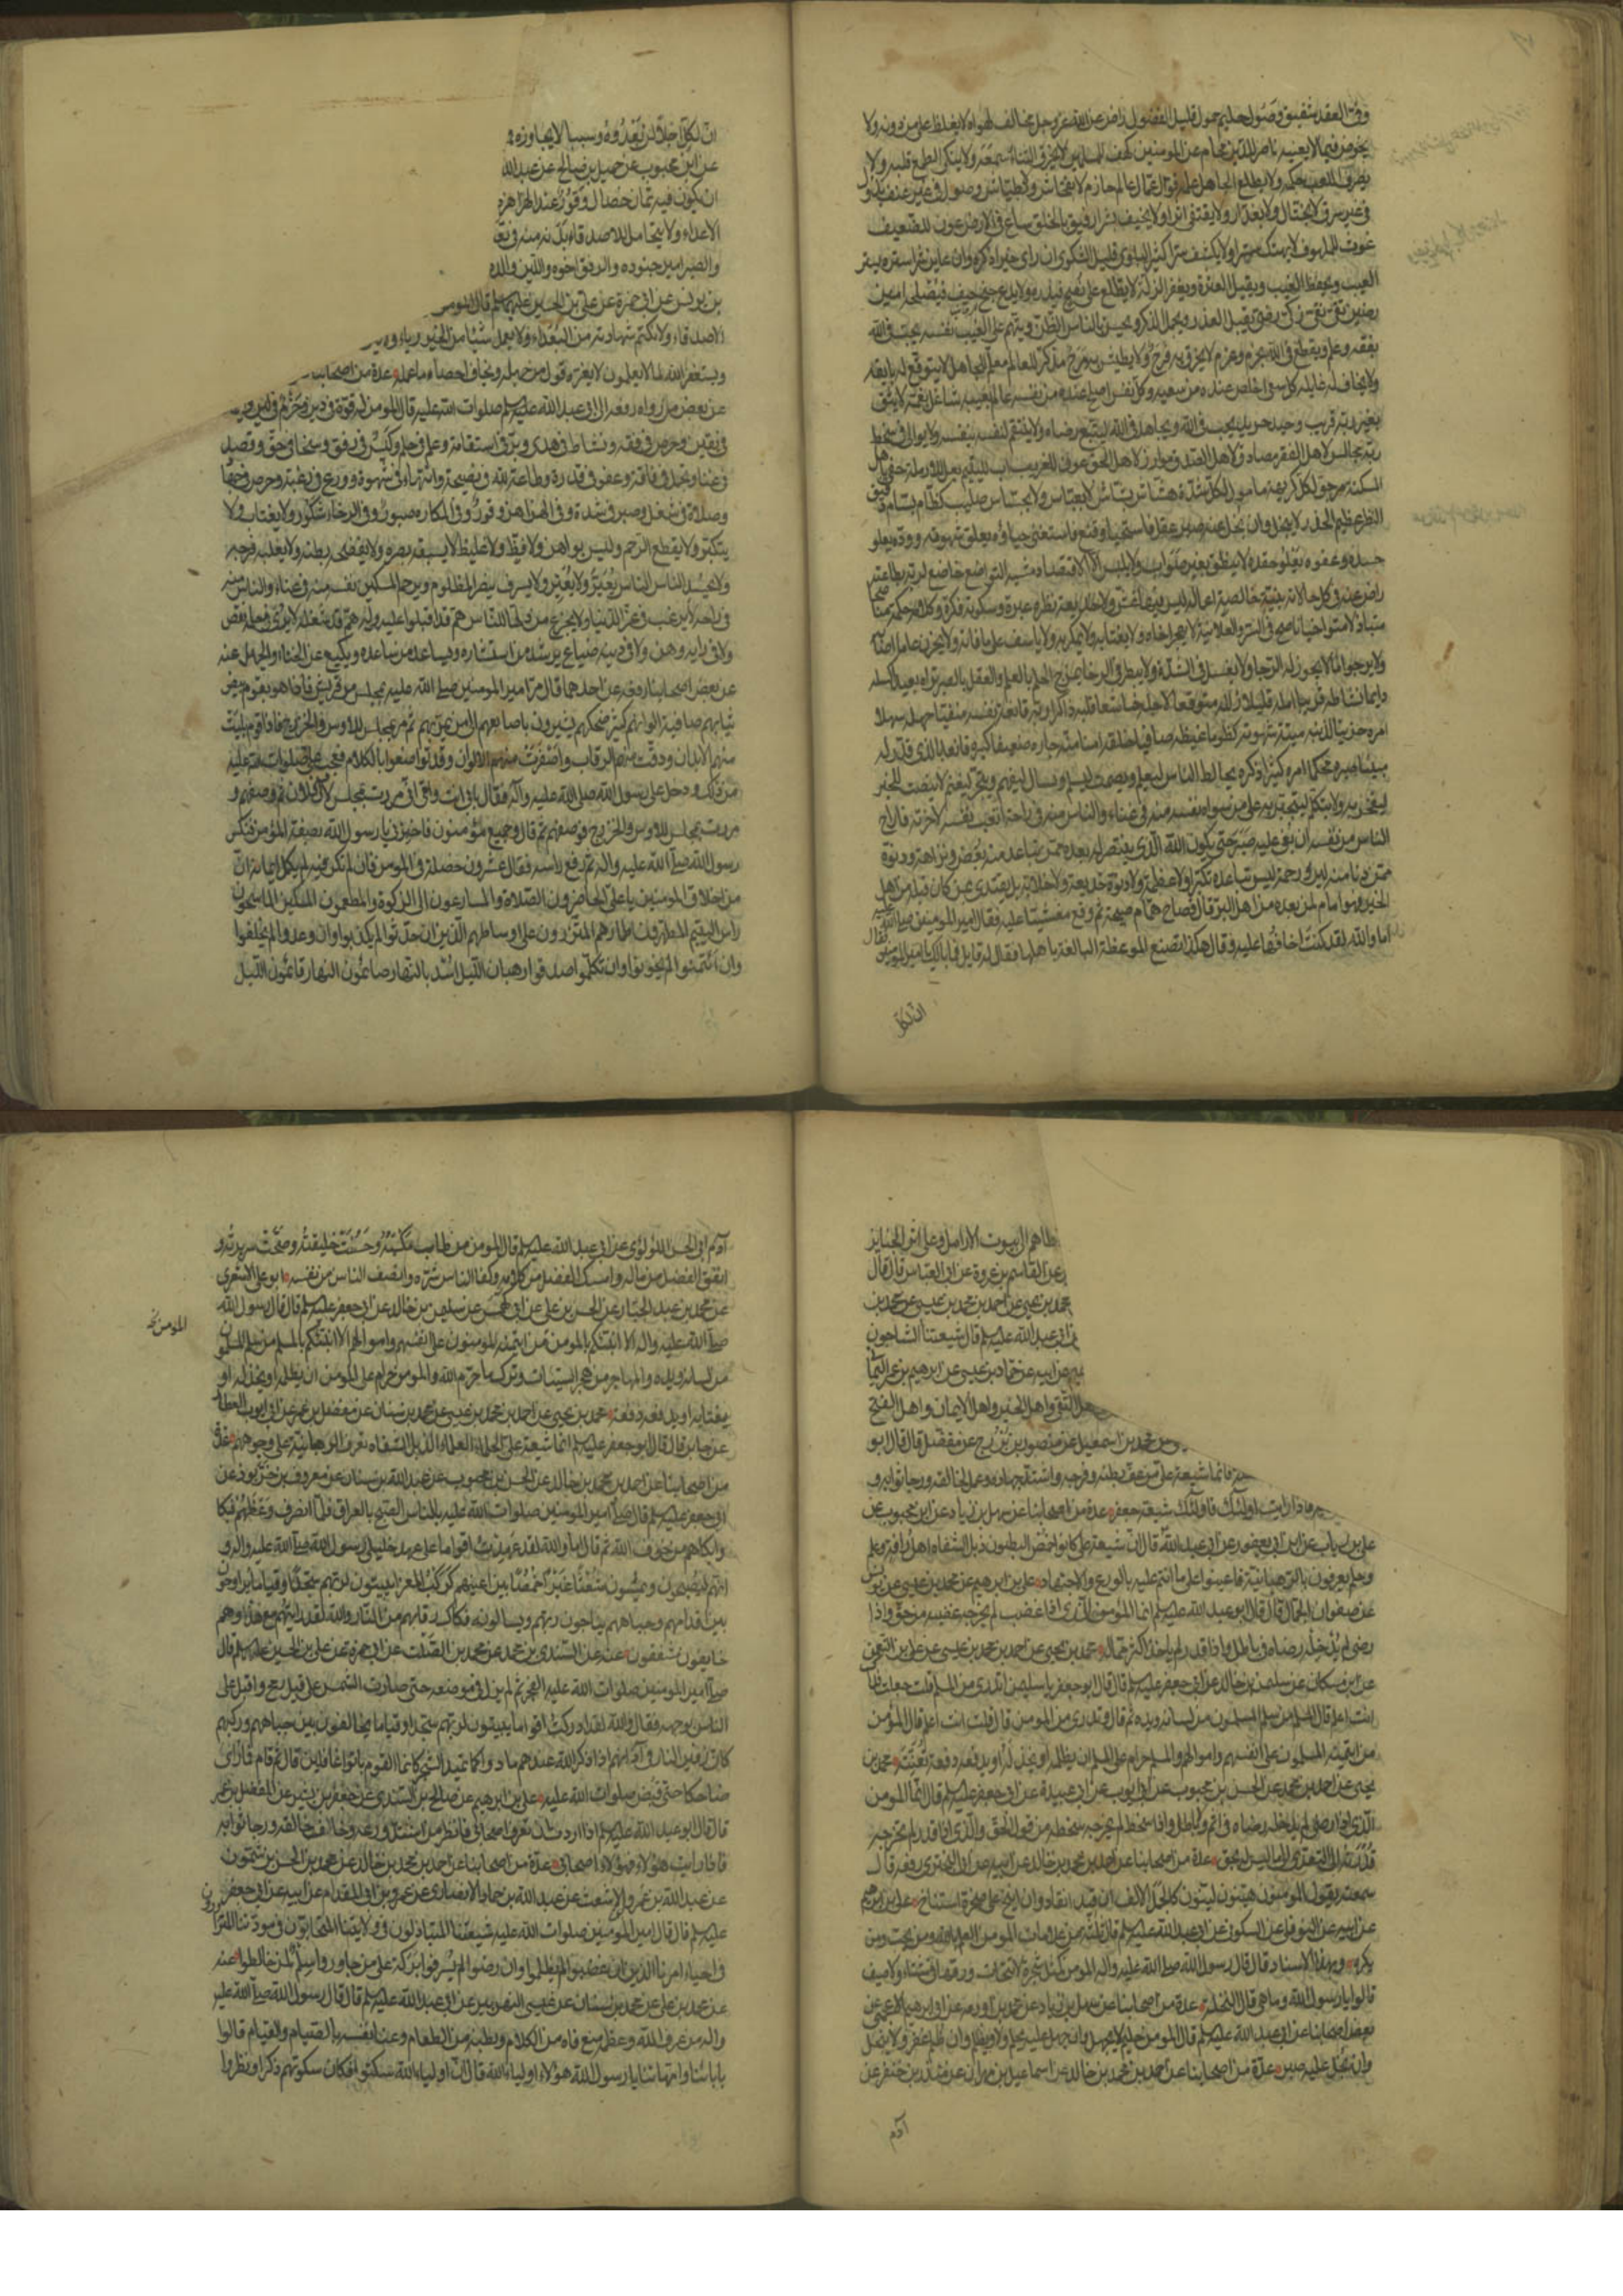 وفيّ العهد شفيق وصول حليم حمول قليل الفضول راض عن الله عز وجل مخالف لهواه لا يغلظ على من دونه ولا
يخوض فيما لا يعنيه ناصر للدين محام عن المؤمنين كهف للمسلمين لا يخرق الثناء سمعه ولا ينكي الطمع قلبه ولا
يصرف اللعب حكمه ولا يطلع الجاهل علمه قوال عمال عالم حازم لا بفحاش ولا بطياش وصول في غير عنف بذول
في غير سرف لا بختال ولا بغدار ولا يقتفي اثرا ولا يحيف بشرا رفيق بالخلق ساع في الارض عون للضعيف
غوث للملهوف لا يهتك سترا ولا يكشف سرا كثير البلوى قليل الشكوى ان راى خيرا ذكره وان عاين شرا ستره يستر
العيب ويحفظ الغيب ويقيل العثرة ويغفر الزلة لا يطلع على نصح فيذره ولا يدع جنح حيف فيصلحه امين
رصين تقي نقي زكي رضي يقبل العذر ويجمل الذكر ويحسن بالناس الظن ويتهم على الغيب نفسه يحب في الله
بفقه وعلم ويقطع في الله بحزم وعزم لا يخرق به فرح ولا يطيش به مرح مذكر للعالم معلم للجاهل لا يتوقع له بايقة
ولا يخاف له غايلة كل سعي اخلص عنده من سعيه وكل نفس اصلح عنده من نفسه عالم بعيبه شاغل بغمه لا يثق
بغير ربه قريب وحيد حزين يحب في الله ويجاهد في الله ليتبع رضاه ولا ينتقم لنفسه بنفسه ولا يوالي في سخط
ربه مجالس لاهل الفقر مصادق لاهل الصدق موازر لاهل الحق عون للغريب اب لليتيم بعل للارملة حفي باهل
المسكنة مرجو لكل كريهة مامول لكل شدة هشاش بشاش لا بعباس ولا بجساس صليب كظام بسام دقيق
النظر عظيم الحذر لا يبخل وان بخل عنه صبر عقل فاستحيا وقنع فاستغنى حياؤه يعلو شهوته ووده يعلو
حسده وعفوه يعلو حقده لا ينطق بغير صواب ولا يلبس الا الاقتصاد مشيه التواضع خاضع لربه بطاعته
راض عنه في كل حالاته نيته خالصة اعماله ليس فيها غش ولا خديعة نظره عبرة وسكوته فكرة وكلامه حكمة مناصحا
متباذلا متواخيا ناصح في السر والعلانية لا يهجر اخاه ولا يغتابه ولا يمكر به ولا ياسف على ما فاته ولا يحزن على ما اصابه
ولا يرجو ما لا يجوز له الرجا ولا يفشل في الشدة ولا يبطر في الرخا يمزج الحلم بالعلم والعقل بالصبر تراه بعيدا كسله
دايما نشاطه قريبا امله قليلا زلله متوقعا لاجله خاشعا قلبه ذاكرا ربه قانعة نفسه منفيا جهله سهلا
امره حزينا لذنبه ميتة شهوته كظوما غيظه صافيا خلقه امنا منه جاره ضعيفا كبره قانعا بالذي قدر له
متينا صبره محكما امره كثيرا ذكره يخالط الناس ليعلم ويصمت ليسلم ويسال ليفهم ويتجر ليغنم لا ينصت للخير
ليفجر به ولا يتكلم ليتجبر به على من سواه نفسه منه في عناء والناس منه في راحة اتعب نفسه لاخرته فاراح
الناس من نفسه ان بغي عليه صبر حتى يكون الله الذي ينتصر له بعده ممن تباعد منه بغض ونزاهة ودنوه
ممن دنا منه لين ورحمة ليس تباعده تكبرا ولا عظمة ولا دنوه خديعة ولا خلابة بل يقتدي بمن كان قبله من اهل
الخير فهو امام لمن بعده من اهل البر قال فصاح همام صيحة ثم وقع مغشيا عليه فقال امير المؤمنين صلوات الله عليه
اما والله لقد كنت اخافها عليه وقال هكذا تصنع الموعظة البالغة باهلها فقال له قايل فما بالك يا امير المؤمنين فقال
ان لكل
ان لكل اجلا لن يعدوه وسببا لا يجاوزه
عن ابن محبوب عن جميل بن صالح عن عبد الله
ان يكون فيه ثمان خصال وقور عند الهزاهز
الاعداء ولا يتحامل للاصدقاء بدنه منه في تعب
والصبر امير جنوده والرفق اخوه واللين والده
بن يونس عن ابي حمزة عن علي بن الحسين عليهما السلم قال المومن
الاصدقاء ولا يكتم شهادته من البعداء ولا يعمل شيئا من الخير رياء
ويستغفر الله لما لا يعلمون لا يغره قول من جهله ويخاف احصاء ما عمله عدة من اصحابنا
عن بعض من رواه رفعه الى ابي عبد الله عليه السلم قال المومن له قوة في دين وحزم في لين
في يقين وحرص في فقه ونشاط في هدى وبر في استقامة وعلم في حلم وكيس في رفق وسخاء في حق وقصد
في غنا وتجمل في فاقة وعفو في قدرة وطاعة لله في نصيحة وانتهاء في شهوة وورع في رغبة وحرص في جهاد
وصلاة في شغل وصبر في شدة وفي الهزاهز وقور وفي المكاره صبور وفي الرخاء شكور ولا يغتاب ولا
يتكبر ولا يقطع الرحم وليس بواهن ولا فظ ولا غليظ لا يسبقه بصره ولا يفضحه بطنه ولا يغلبه فرجه
ولا يحسد الناس يعير ولا يعير ولا يسرف ينصر المظلوم ويرحم المسكين نفسه منه في عناء والناس منه
في راحة لا يرغب في عز الدنيا ولا يجزع من ذلها للناس هم قد اقبلوا عليه وله هم قد شغله لا يرى في حلمه نقص
ولا في رايه وهن ولا في دينه ضياع يرشد من استشاره ويساعد من ساعده ويكيع عن الخناء والجهل عنه
عن بعض اصحابنا رفعه عن احدهما قال مر امير المومنين صلى الله عليه بمجلس من قريش فاذا هو بقوم بيض
ثيابهم صافية الوانهم كثير ضحكهم يشيرون باصابعهم الى من يمر بهم ثم مر بمجلس للاوس والخزرج فاذا قوم بليت
منهم الابدان ودقت منهم الرقاب واصفرت منهم الالوان وقد تواضعوا بالكلام فتعجب علي صلوات الله عليه
من ذلك ودخل على رسول الله صلى الله عليه وآله فقال بابي انت وامي اني مررت بمجلس لآل فلان ثم وصفهم و
مررت بمجلس للاوس والخزرج فوصفهم ثم قال وجميع مؤمنون فاخبرني يا رسول الله بصفة المؤمن فنكس
رسول الله صلى الله عليه واله ثم رفع راسه فقال عشرون خصلة في المومن فان لم تكن فيه لم يكمل ايمانه ان
من اخلاق المومنين يا علي الحاضرون الصلاة والمسارعون الى الزكوة والمطعمون المسكين الماسحون
راس اليتيم المطهرون اطمارهم المتزرون على اوساطهم الذين ان حدثوا لم يكذبوا وان وعدوا لم يخلفوا
وان ائتمنوا لم يخونوا وان تكلموا صدقوا رهبان الليل اسد بالنهار صائمون النهار قائمون الليل
خطاهم الى بيوت الارامل وعلى اثر الجنايز
عن القاسم بن عروة عن ابي العباس قال قال
محمد بن يحيى عن احمد بن محمد بن عيسى عن محمد بن
عن ابي عبد الله عليه السلم قال شيعتنا الشاحبون
عن ابيه عن حماد بن عيسى عن ابرهيم بن عمر اليماني
اهل التقى واهل الخير واهل الايمان واهل الفتح
محمد بن اسمعيل عن منصور بزرج عن مفضل قال قال ابو
فانما شيعة علي من عف بطنه وفرجه واشتد جهاده وعمل لخالقه ورجا ثوابه و
فاذا رايت اولئك فاولئك شيعة جعفر عدة من اصحابنا عن سهل بن زياد عن ابن محبوب عن
علي بن رياب عن ابن ابي يعفور عن ابي عبد الله قال ان شيعة علي كانوا خمص البطون ذبل الشفاه اهل رافة وعلم
وحلم يعرفون بالرهبانية فاعينوا على ما انتم عليه بالورع والاجتهاد علي بن ابرهيم عن محمد بن عيسى عن يونس
عن صفوان الجمال قال قال ابو عبد الله عليه السلم انما المؤمن الذي اذا غضب لم يخرجه غضبه من حق واذا
رضي لم يدخله رضاه في باطل واذا قدر لم ياخذ اكثر مماله محمد بن يحيى عن احمد بن محمد بن عيسى عن علي بن النعمن
عن ابن مسكان عن سليمن بن خالد عن ابي جعفر عليه السلم قال قال ابو جعفر يا سليمن اتدري من المسلم قلت جعلت فداك
انت اعلم قال المسلم من سلم المسلمون من لسانه ويده ثم قال وتدري من المومن قال قلت انت اعلم قال المؤمن
من ايتمنه المسلمون على انفسهم واموالهم والمسلم حرام على المسلم ان يظلمه او يخذله او يدفعه دفعة تعنته محمد بن
يحيى عن احمد بن محمد عن الحسن بن محبوب عن ابي ايوب عن ابي عبيدة عن ابي جعفر عليه السلم قال انما المومن
الذي اذا رضي لم يدخله رضاه في اثم ولا باطل واذا سخط لم يخرجه سخطه من قول الحق والذي اذا قدر لم تخرجه
قدرته الى التعدي الى ما ليس له بحق عدة من اصحابنا عن احمد بن محمد بن خالد عن ابيه عن ابي البختري رفعه قال
سمعته يقول المومنون هينون لينون كالجمل الالف ان قيد انقاد وان انيخ على صخرة استناخ علي بن ابرهيم
عن ابيه عن النوفلي عن السكوني عن ابي عبد الله عليه السلم قال ثلثة من علامات المومن العلم بالله ومن يحب ومن
يكره وبهذا الاسناد قال قال رسول الله صلى الله عليه واله المومن كمثل شجرة لا يتحات ورقها في شتاء ولا صيف
قالوا يا رسول الله وما هي قال النخلة عدة من اصحابنا عن سهل بن زياد عن محمد بن اورمه عن ابي ابرهيم الاعجمي عن
بعض اصحابنا عن ابي عبد الله عليه السلم قال المومن حليم لا يجهل وان جهل عليه يحلم ولا يظلم وان ظلم غفر ولا يبخل
وان بخل عليه صبر عدة من اصحابنا عن احمد بن محمد بن خالد عن اسماعيل بن مهران عن منذر بن جيفر عن
آدم
آدم ابي الحسن اللؤلؤي عن ابي عبد الله عليه السلم قال المومن من طاب مكسبه وحسنت خليقته وصحت سريرته و
انفق الفضل من ماله وامسك الفضل من كلامه وكفا الناس شره وانصف الناس من نفسه ابو علي الاشعري
عن محمد بن عبد الجبار عن الحسن بن علي عن ابي كهمس عن سليمن بن خالد عن ابي جعفر عليه السلم قال قال رسول الله
صلى الله عليه واله الا انبئكم بالمومن من ايتمنه المومنون على انفسهم واموالهم الا انبئكم بالمسلم من سلم المسلمون
المومن نخ
من لسانه ويده والمهاجر من هجر السيئات وترك ما حرم الله والمومن حرام على المومن ان يظلمه او يخذله او
يغتابه او يدفعه دفعة محمد بن يحيى عن احمد بن محمد بن عيسى عن محمد بن سنان عن مفضل بن عمر عن ابي ايوب العطار
عن جابر قال قال ابو جعفر عليه السلم انما شيعة علي الحلماء العلماء الذبل الشفاه تعرف الرهبانية على وجوههم عدة
من اصحابنا عن احمد بن محمد بن خالد عن الحسن بن محبوب عن عبد الله بن سنان عن معروف بن خربوذ عن
ابي جعفر عليه السلم قال صلى امير المومنين صلوات الله عليه بالناس الصبح بالعراق فلما انصرف وعظهم فبكا
وابكاهم من خوف الله ثم قال اما والله لقد عهدت اقواما على عهد خليلي رسول الله صلى الله عليه واله و
انهم ليصبحون ويمسون شعثا غبرا خمصا بين اعينهم كركب المعزا يبيتون لربهم سجدا وقياما يراوحون
بين اقدامهم وجباههم يناجون ربهم ويسالونه فكاك رقابهم من النار والله لقد رايتهم مع هذا وهم
خايفون مشفقون عنه عن السندي بن محمد عن محمد بن الصلت عن ابي حمزة عن علي بن الحسين عليه السلم قال
صلى امير المومنين صلوات الله عليه الفجر ثم لم يزل في موضعه حتى صارت الشمس على قيد رمح واقبل على
الناس بوجهه فقال والله لقد ادركت اقواما يبيتون لربهم سجدا وقياما يخالفون بين جباههم وركبهم
كان زفير النار في آذانهم اذا ذكر الله عندهم مادوا كما تميد الشجر كانما القوم باتوا غافلين قال ثم قام فما رئي
ضاحكا حتى قبض صلوات الله عليه علي بن ابرهيم عن صالح بن السندي عن جعفر بن بشير عن المفضل بن عمر
قال قال ابو عبد الله عليه السلم اذا اردت ان تعرف اصحابي فانظر من اشتد ورعه وخاف خالقه ورجا ثوابه
فاذا رايت هؤلاء فهؤلاء اصحابي عدة من اصحابنا عن احمد بن محمد بن خالد عن محمد بن الحسن بن شمون
عن عبد الله بن عمرو بن الاشعث عن عبد الله بن حماد الانصاري عن عمرو بن ابي المقدام عن ابيه عن ابي جعفر
عليه السلم قال قال امير المؤمنين صلوات الله عليه شيعتنا المتباذلون في ولايتنا المتحابون في مودتنا المتزاورون
في احياء امرنا الذين ان غضبوا لم يظلموا وان رضوا لم يسرفوا بركة على من جاوروا سلم لمن خالطوا عنه
عن محمد بن علي عن محمد بن سنان عن عيسى النهريري عن ابي عبد الله عليه السلم قال قال رسول الله صلى الله عليه
واله من عرف الله وعظمه منع فاه من الكلام وبطنه من الطعام وعنا نفسه بالصيام والقيام قالوا
بابائنا وامهاتنا يا رسول الله هؤلاء اولياء الله قال ان اولياء الله سكتوا فكان سكوتهم ذكرا ونظروا